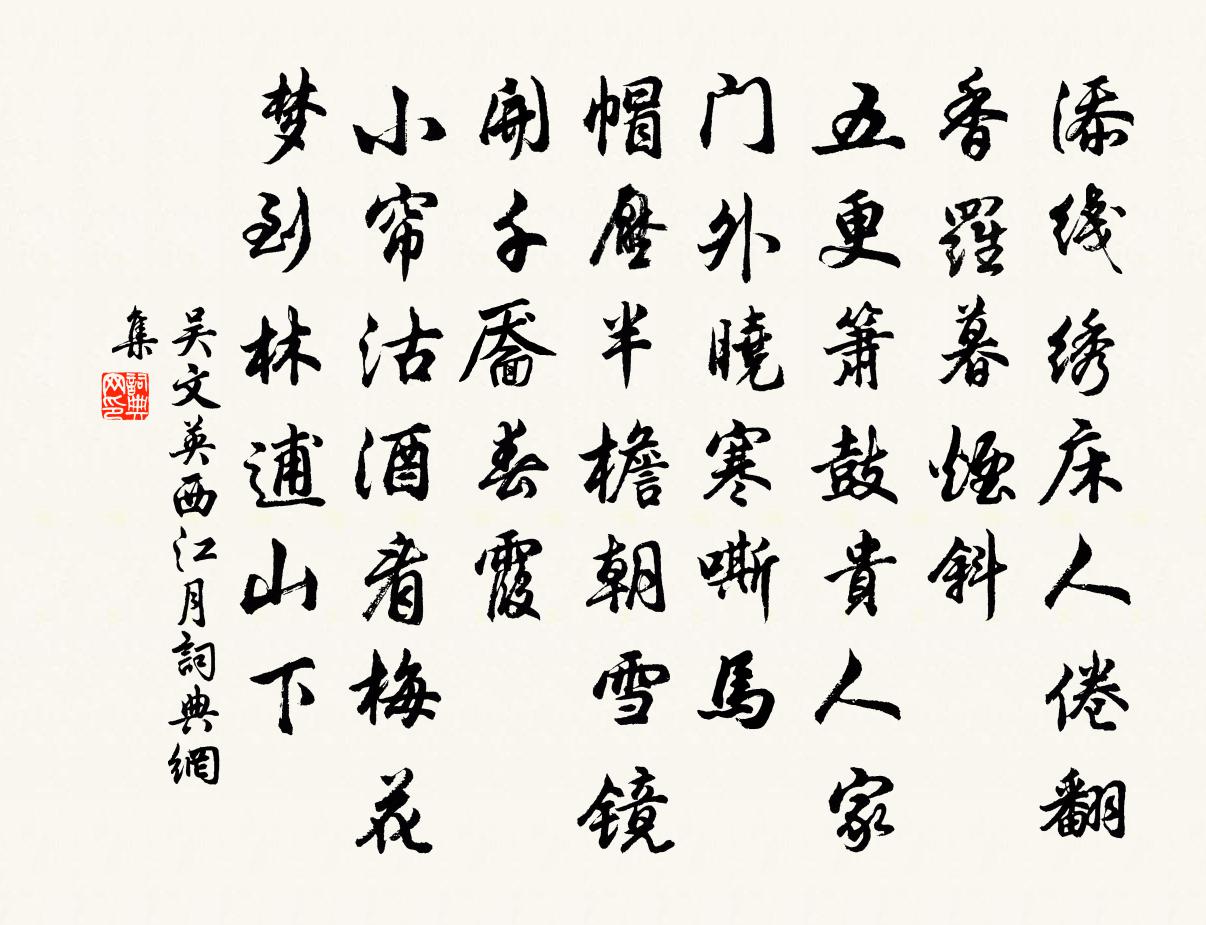 添线绣床人倦翻
香羅暮煙斜
五更箫鼓貴人家
门外曉寒嘶馬
帽壓半檐朝雪镜
開千靥春霞
小帘沽酒看梅花
梦到林逋山下
吴文英西江月詞典網
集
詞典网印